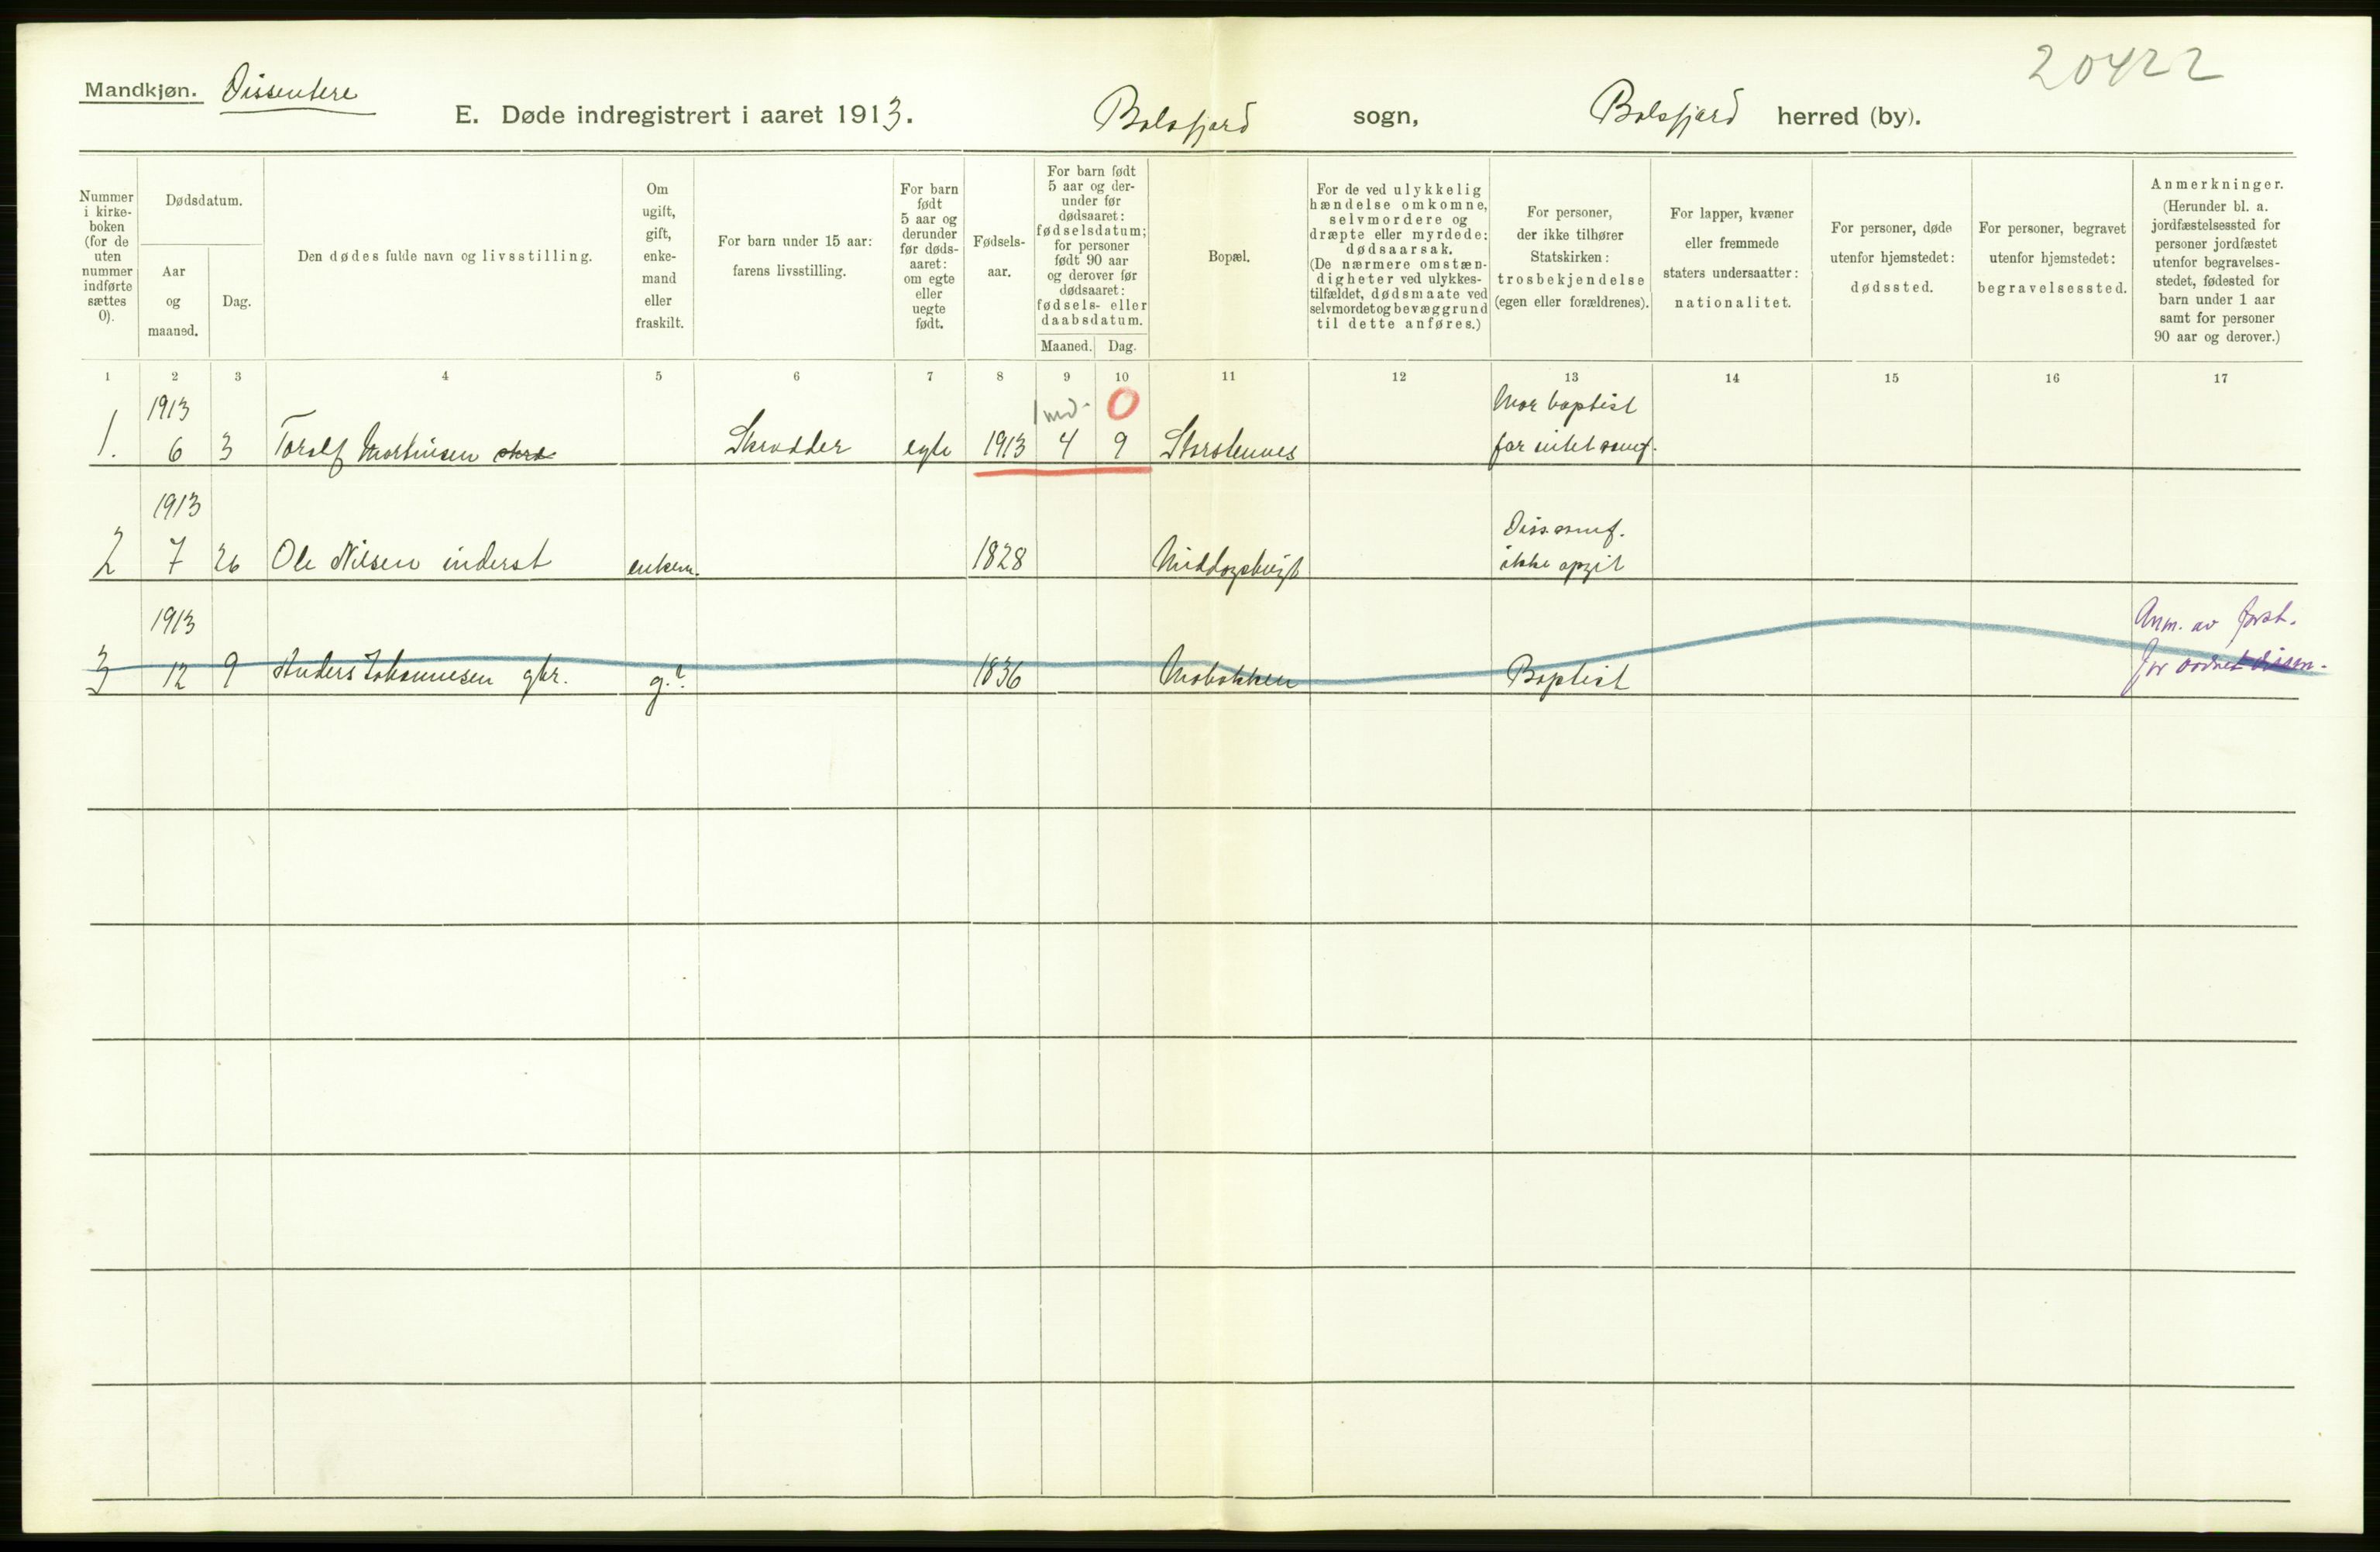 20422
Mandkjøn. Dissentere
E. Døde indregistrert i aaret 1913. Balsfjord sogn, Balsfjord herred (by).
Nummer i kirke- boken (for de uten nummer indførte sættes 0).
Dødsdatum.
Aar og maaned.
Dag.
Den dødes fulde navn og livsstilling.
Om ugift, gift, enke- mand eller fraskilt.
For barn under 15 aar: farens livsstilling.
For barn født 5 aar og derunder før døds- aaret: om egte eller uegte født.
Fødsels- aar.
For barn født 5 aar og der- under før dødsaaret: fødselsdatum; for personer født 90 aar og derover før dødsaaret: fødsels- eller daabsdatum.
Maaned. Dag.
Bopæl.
For de ved ulykkelig hændelse omkomne, selvmordere og dræpte eller myrdede: dødsaarsak. (De nærmere omstæn- digheter ved ulykkes- tilfældet, dødsmaate ved selvmordet og bevæggrund til dette anføres.)
For personer, der ikke tilhører Statskirken: trosbekjendelse (egen eller forældrenes).
For lapper, kvæner eller fremmede staters undersaatter: nationalitet.
For personer, døde utenfor hjemstedet: dødssted.
For personer, begravet utenfor hjemstedet: begravelsessted.
Anmerkninger. (Herunder bl. a. jordfæstelsessted for personer jordfæstet utenfor begravelses- stedet, fødested for barn under 1 aar samt for personer 90 aar og derover.)
1 2 3 4 5 6 7 8 9 10 11 12 13 14 15 16 17
1913 1 md. 0 Mor baptist
1. 6 3 Toralf Martinsen skræ Skrædder egte 1913 4 9 Storstennes far intet samf.
1913 Diss. samf.
2 7 26 Ole Nilsen inderst enkem. 1828 ikke opgit
1913 Anm. av forst.
3 12 9 Anders Johannesen gbr. g.? 1836 Baptist for